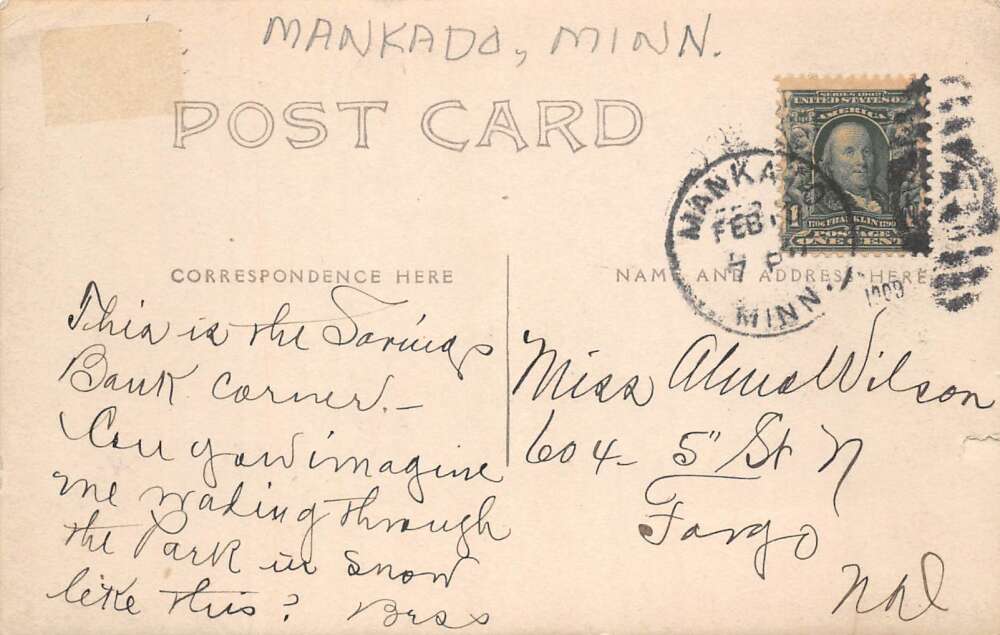 MANKADO, MINN.
POST CARD
SERIES 1902
UNITED STATES OF
AMERICA
1706 FRANKLIN 1790
POSTAGE
ONE CENT
MANKATO
FEB
7 P
MINN.
1909
CORRESPONDENCE HERE
NAME AND ADDRESS HERE
This is the Savings
Bank corner. —
Can you imagine
me wading through
the Park in snow
like this? Bess
Miss Alma Wilson
604 - 5" St N
Fargo
N D